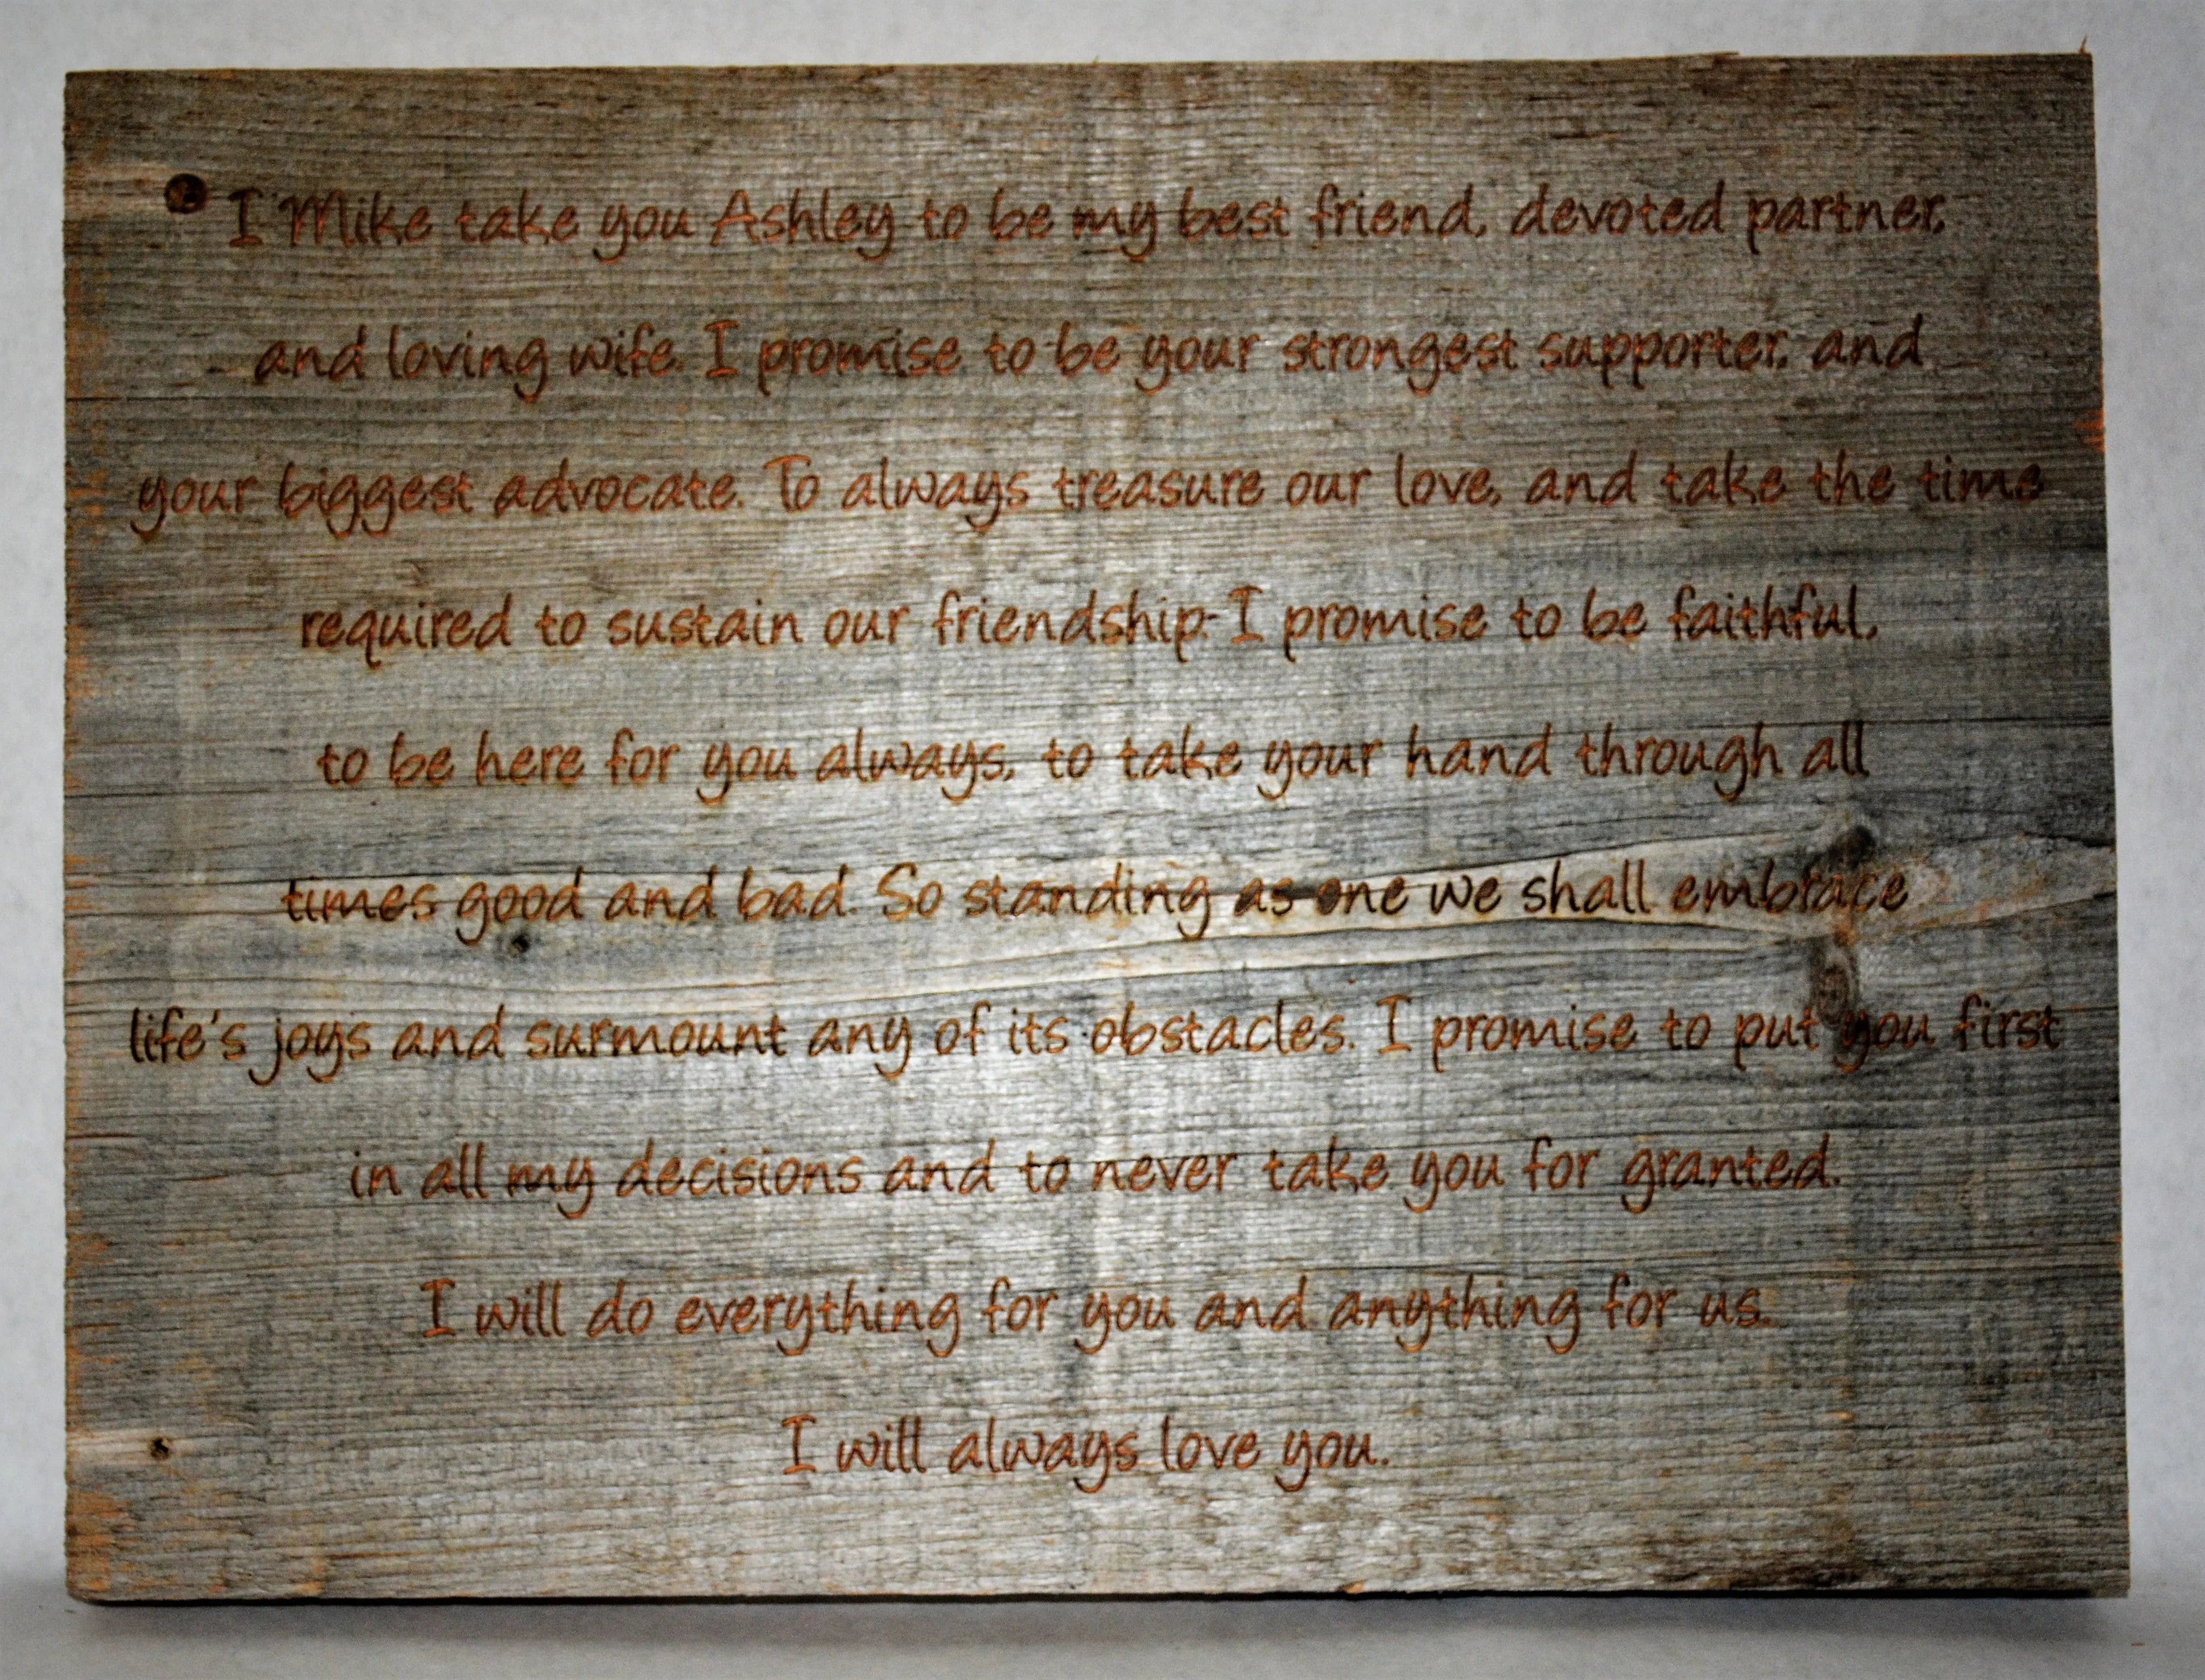 I Mike take you Ashley to be my best friend, devoted partner,
and loving wife. I promise to be your strongest supporter, and
your biggest advocate. To always treasure our love, and take the time
required to sustain our friendship. I promise to be faithful,
to be here for you always, to take your hand through all
times good and bad. So standing as one we shall embrace
life's joys and surmount any of its obstacles. I promise to put you first
in all my decisions and to never take you for granted.
I will do everything for you and anything for us.
I will always love you.